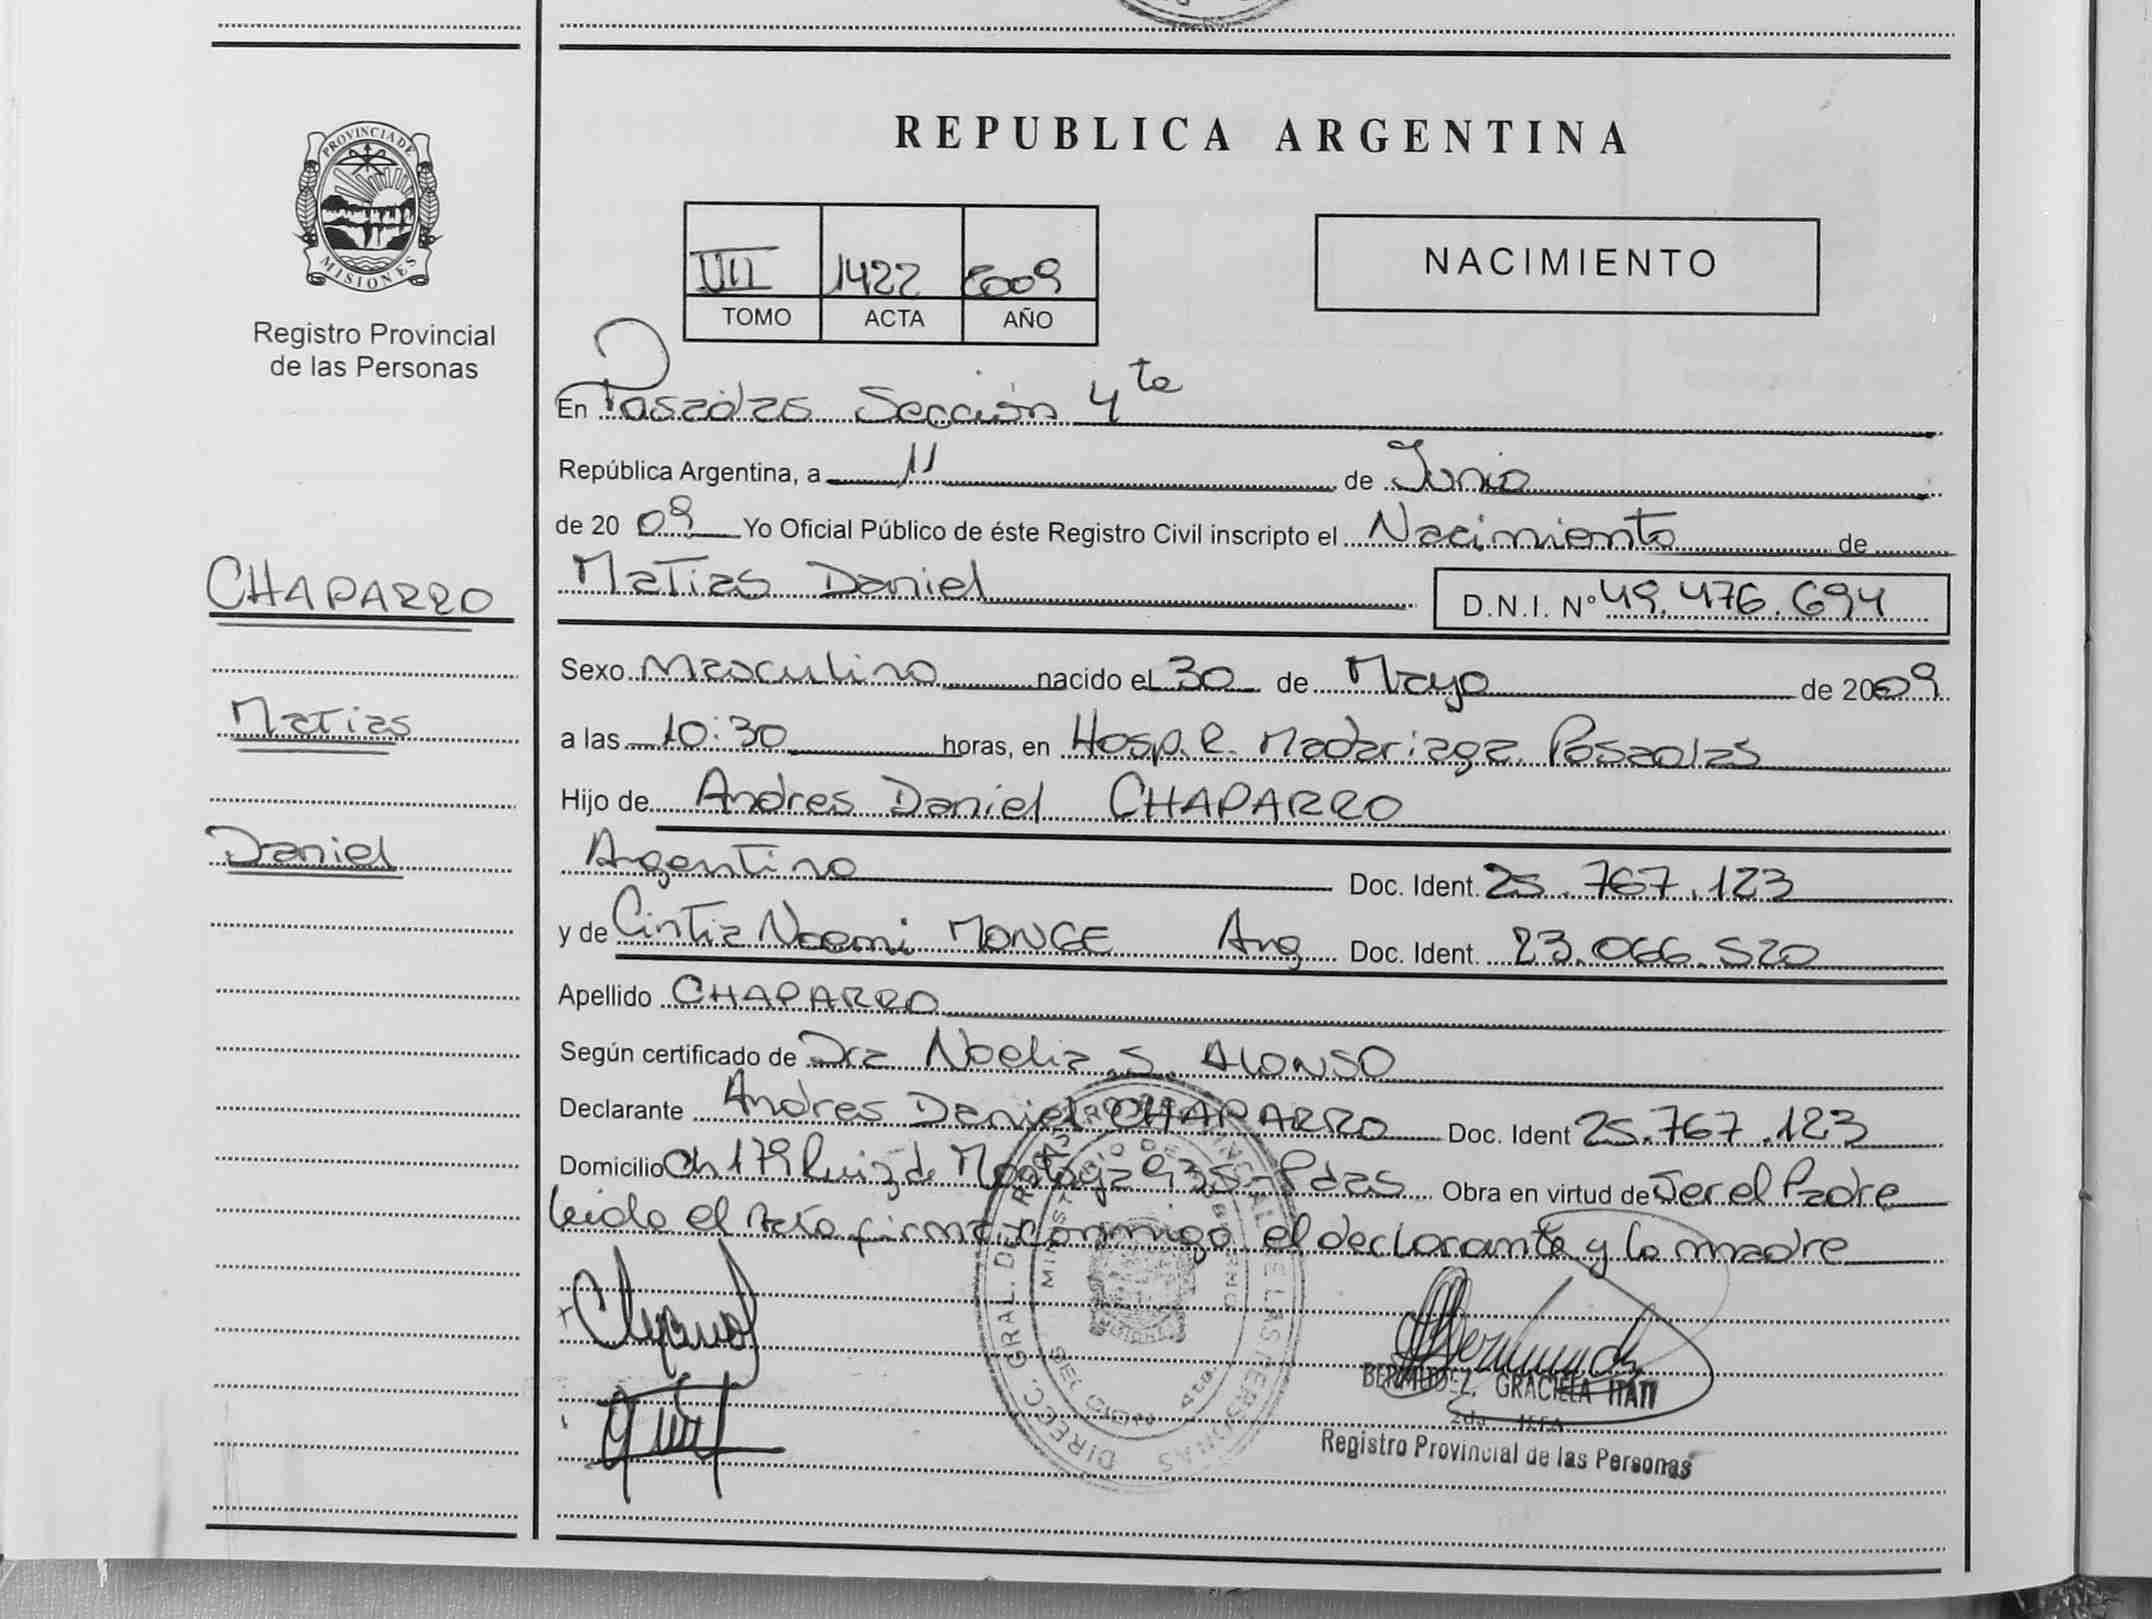 PROVINCIA DE
MISIONES
Registro Provincial
de las Personas
CHAPARRO
Matias
Daniel
REPUBLICA ARGENTINA
VII 1422 2009
TOMO ACTA AÑO
NACIMIENTO
En Posadas Sección 4ta
República Argentina, a 11 de Junio
de 2009 Yo Oficial Público de éste Registro Civil inscripto el Nacimiento de
Matias Daniel D.N.I. Nº 49.476.694
Sexo Masculino nacido el 30 de Mayo de 2009
a las 10:30 horas, en Hosp. R. Madariaga. Posadas
Hijo de Andres Daniel CHAPARRO
Argentino Doc. Ident. 25.767.123
y de Cintia Noemi MONGE Arg Doc. Ident. 23.066.520
Apellido CHAPARRO
Según certificado de Dra Noelia S. ALONSO
Declarante Andres Daniel CHAPARRO Doc. Ident 25.767.123
Domicilio Ch 179 Ruiz de Montoya 935 - Pdas Obra en virtud de Ser el Padre
leido el Acta firma conmigo el declarante y la madre
DIRECC. GRAL. DEL DE LAS PERSONAS
MINISTERIO DE GOBIERNO
4ta.
BERMUDEZ, GRACIELA ITATI
2da JEFA
Registro Provincial de las Personas